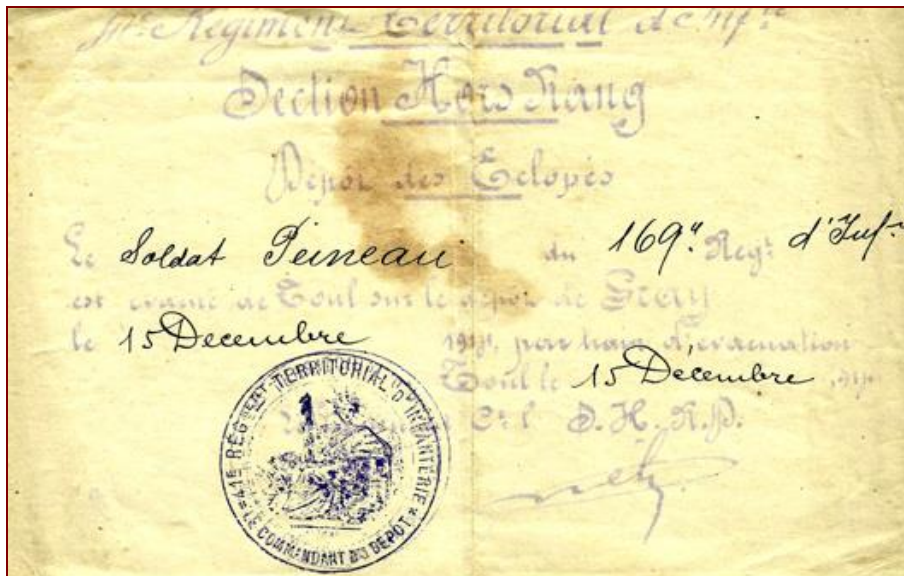 Régiment Territorial d'Inf.ie
Section Hors Rang
Dépot des Eclopés
Le Soldat Peineau du 169e Regt d'Inf.
est évacué de Toul sur le dépot de Gray
le 15 Decembre 1914, par train d'évacuation
Toul le 15 Décembre 191
Ct. l S.H.R.
41E REGIMENT TERRITORIAL D'INFANTERIE
* LE COMMANDANT DU DEPOT *